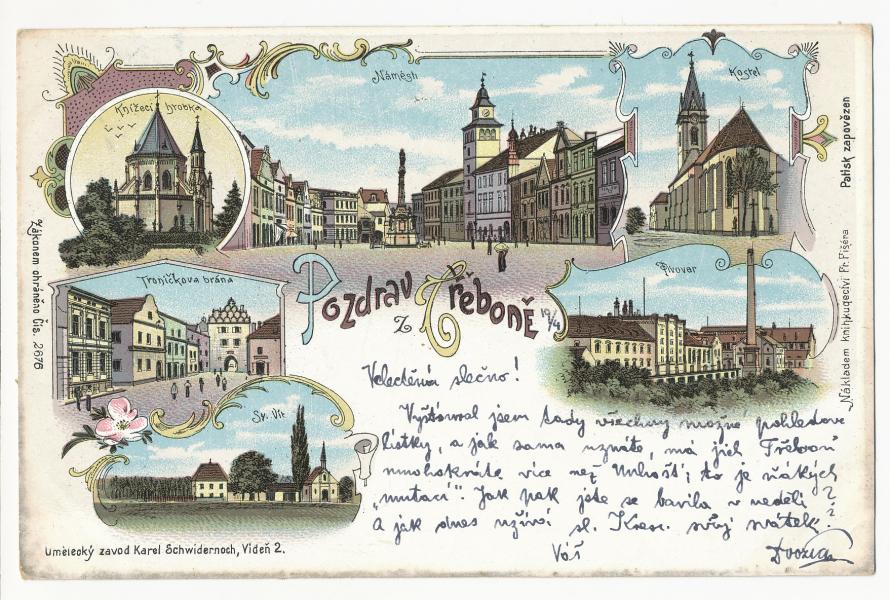 Knížecí hrobka
Náměstí
Kostel
Patisk zapovězen
Nákladem knihkupectví Fr. Pišéra
Zákonem chráněno Čís. 2676
Pozdrav
z Třeboně
19/4
Pivovar
Troničkova brána
Sv. Vít
Veleděná slečno!
Vyštíoval jsem tady všechny možné pohledové
lístky, a jak sama uznáte, má jich Třeboň
mnohokráte více než Unhošť; to je ňákých
„mutací". Jak pak jste se bavila v neděli?
A jak dnes užívá sl. svůj svátek?
Váš
Umělecký zavod Karel Schwidernoch, Vídeň 2.